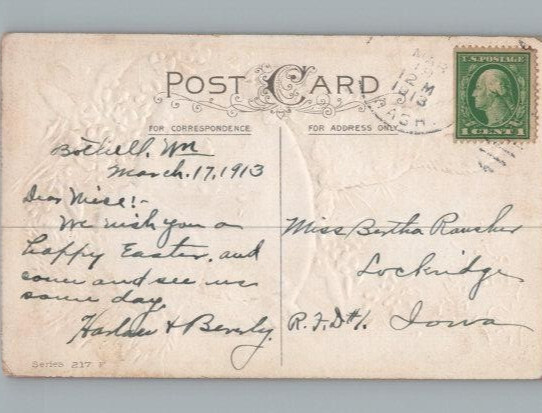 POST CARD
FOR CORRESPONDENCE
FOR ADDRESS ONLY
MAR
12 M
1913
WASH.
U.S. POSTAGE
1 CENT 1
Bothell, Wn
March. 17, 1913
Dear Niece!-
We wish you a
happy Easter, and
come and see us
some day.
Harlan & Beverly.
Miss Bertha Rausher
Lockridge
R.F.D#1. Iowa
Series 217 F